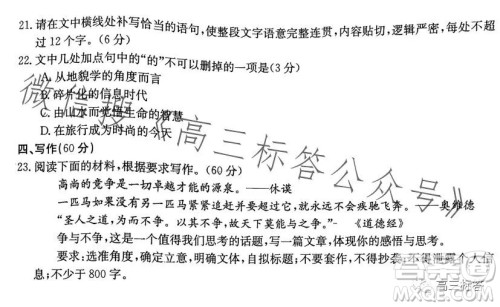 21. 请在文中横线处补写恰当的语句，使整段文字语意完整连贯，内容贴切，逻辑严密，每处不超
过 12 个字。(6 分)
22. 文中几处加点句中的“的”不可以删掉的一项是(3 分)
A. 从地貌学的角度而言
B. 碎片化的信息时代
C. 由山水而觉悟生命的智慧
D. 在旅行成为时尚的今天
四、写作(60 分)
23. 阅读下面的材料，根据要求写作。(60 分)
高尚的竞争是一切卓越才能的源泉。——休谟
一匹马如果没有另一匹马紧紧追赶并要超过它，就永远不会疾驰飞奔。——奥维德
“圣人之道，为而不争。以其不争，故天下莫能与之争。”- 《道德经》
争与不争，这是一个值得我们思考的话题，写一篇文章，体现你的感悟与思考。
要求：选准角度，确定立意，明确文体，自拟标题；不要套作，不得抄袭；不得泄露个人信
息；不少于 800 字。
微信搜《高三标答公众号》
高三标答